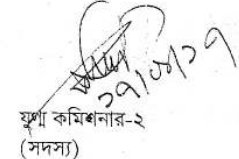 ২৭/০৮/১৭
যুগ্ম কমিশনার-২
(সদস্য)